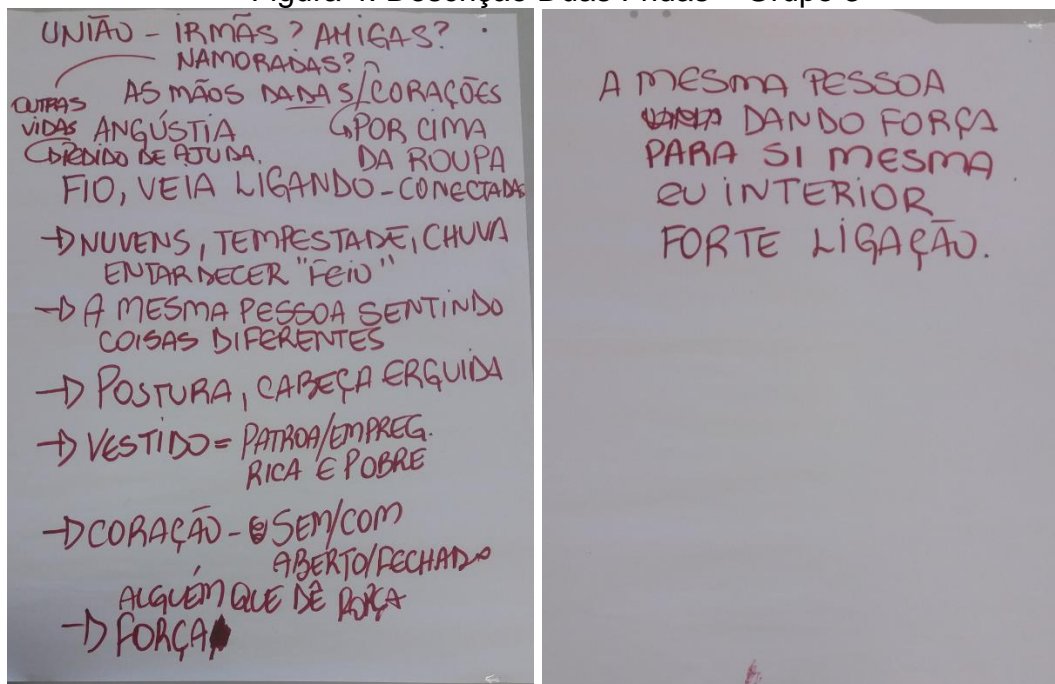 UNIÃO - IRMÃS? AMIGAS?
NAMORADAS?
OUTRAS VIDAS
AS MÃOS DADAS/CORAÇÕES
POR CIMA
DA ROUPA
ANGÚSTIA
PEDIDO DE AJUDA.
FIO, VEIA LIGANDO - CONECTADAS
NUVENS, TEMPESTADE, CHUVA
ENTARDECER "FEIO"
A MESMA PESSOA SENTINDO
COISAS DIFERENTES
POSTURA, CABEÇA ERGUIDA
VESTIDO = PATROA/EMPREG.
RICA E POBRE
CORAÇÃO - SEM/COM
ABERTO/FECHADO
ALGUÉM QUE DÊ FORÇA
FORÇA
A MESMA PESSOA
DANDO FORÇA
PARA SI MESMA
EU INTERIOR
FORTE LIGAÇÃO.